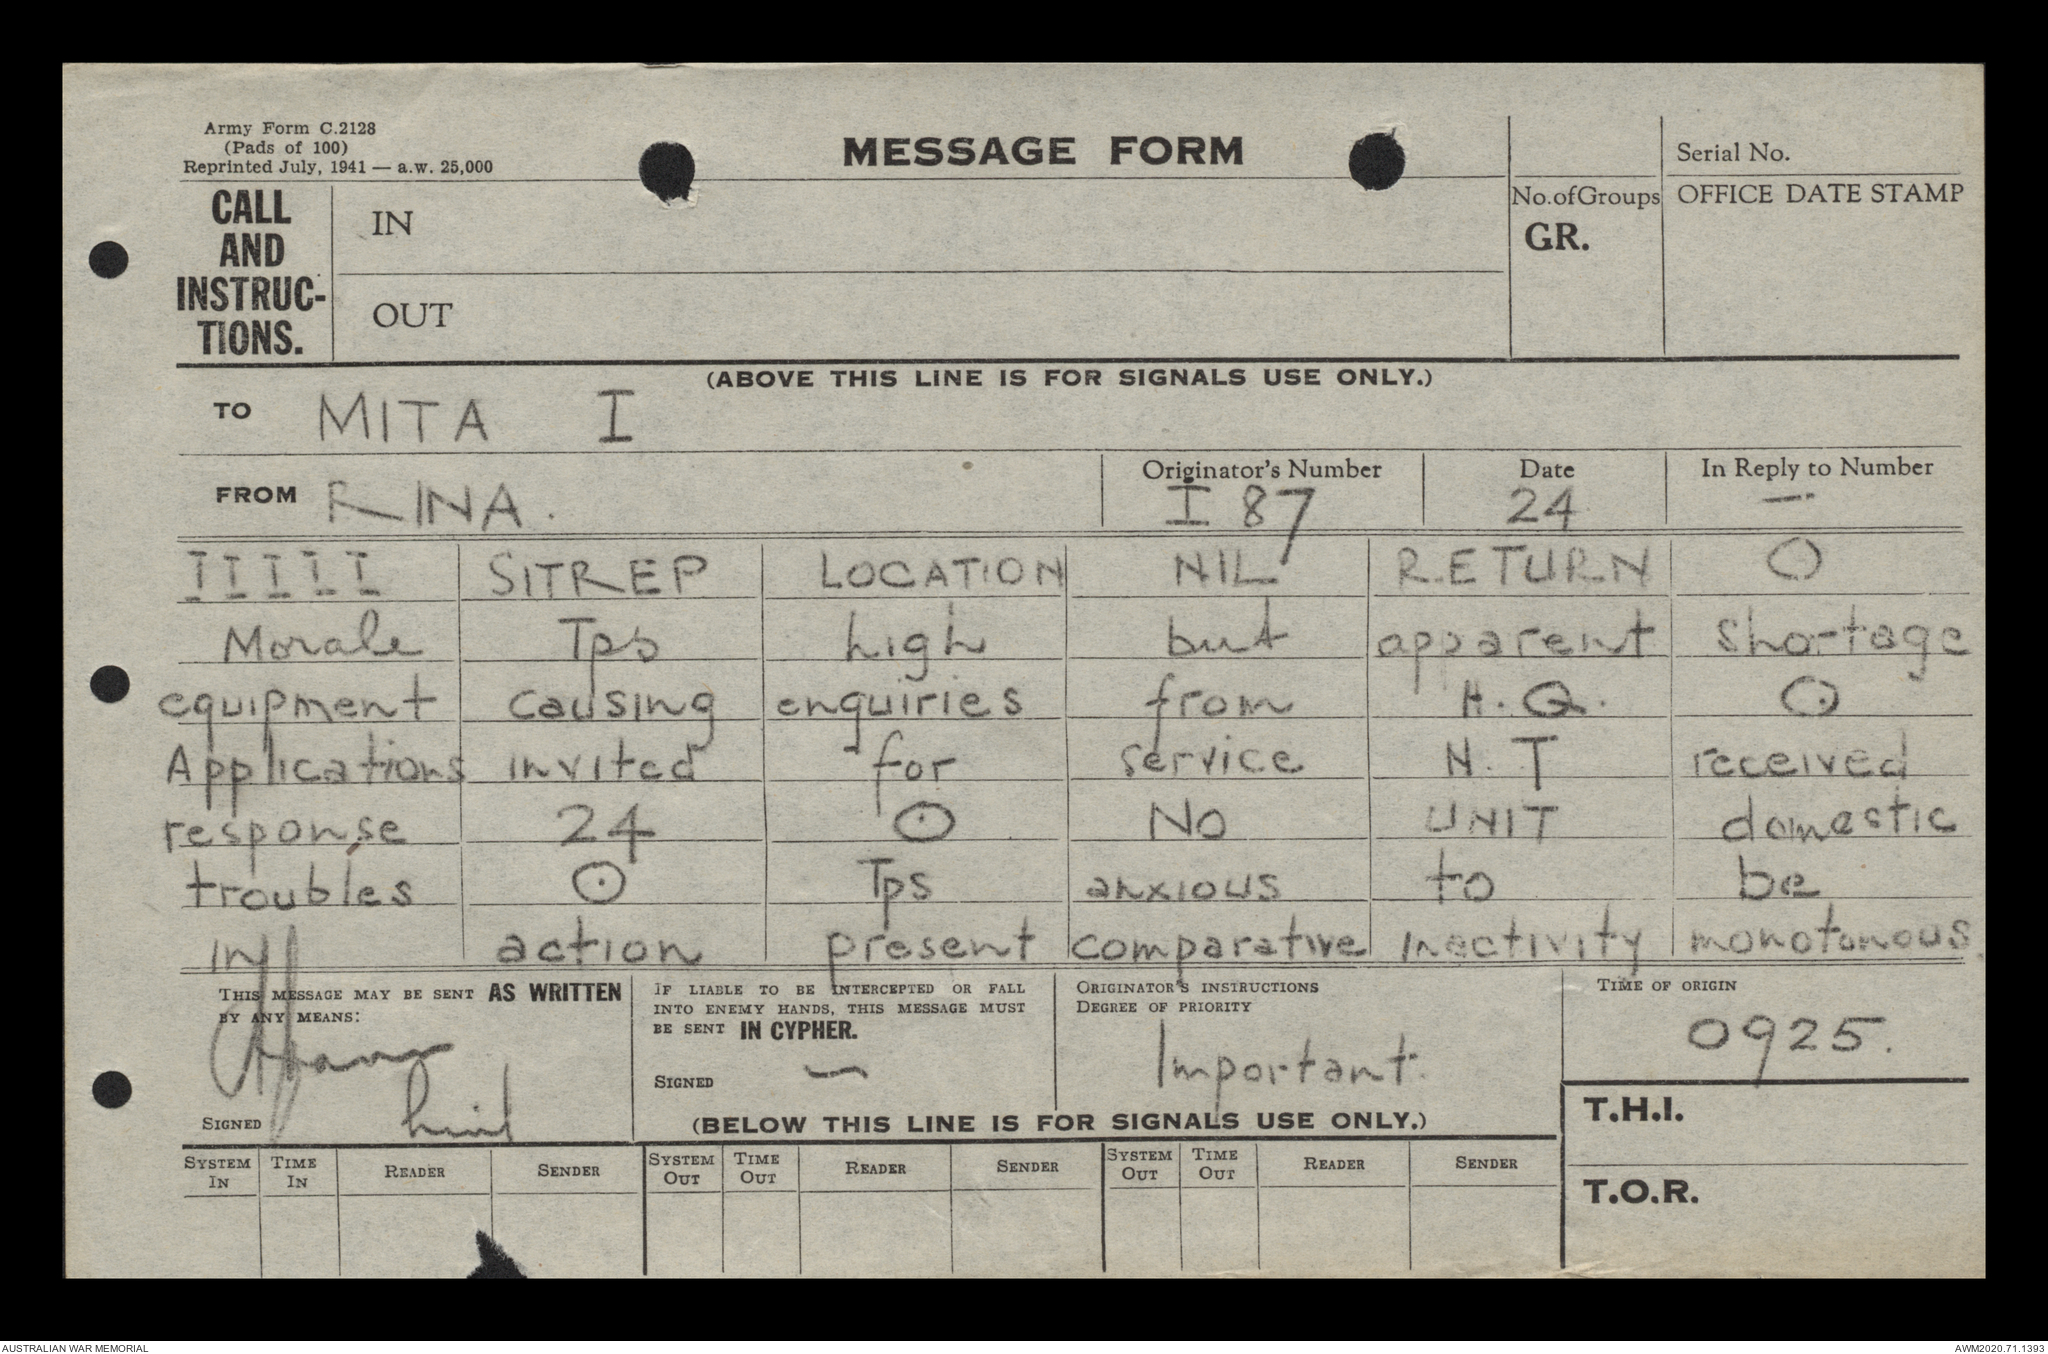 Army Form C.2128
(Pads of 100)
Reprinted July, 1941 — a.w. 25,000
MESSAGE FORM
Serial No.
CALL AND INSTRUC-TIONS.
IN
No. of Groups
GR.
OFFICE DATE STAMP
OUT
(ABOVE THIS LINE IS FOR SIGNALS USE ONLY.)
TO MITA I
FROM RINA.
Originator's Number I 87
Date 24
In Reply to Number —
I I I I I SITREP LOCATION NIL RETURN O
Morale Tps high but apparent shortage
equipment causing enquiries from H.Q. ⊙
Applications invited for service N.T received
response 24 ⊙ No UNIT domestic
troubles ⊙ Tps anxious to be
in action present comparative inactivity monotonous.
THIS MESSAGE MAY BE SENT AS WRITTEN
BY ANY MEANS:
SIGNED
IF LIABLE TO BE INTERCEPTED OR FALL
INTO ENEMY HANDS, THIS MESSAGE MUST
BE SENT IN CYPHER.
SIGNED —
ORIGINATOR'S INSTRUCTIONS
DEGREE OF PRIORITY
Important.
TIME OF ORIGIN
0925.
(BELOW THIS LINE IS FOR SIGNALS USE ONLY.)
T.H.I.
T.O.R.
SYSTEM IN TIME IN READER SENDER SYSTEM OUT TIME OUT READER SENDER SYSTEM OUT TIME OUT READER SENDER
AUSTRALIAN WAR MEMORIAL
AWM2020.71.1393